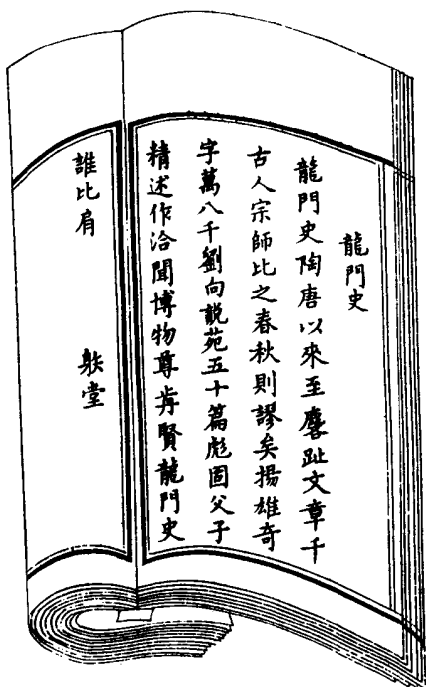 龍門史
龍門史陶唐以來至麐趾文章千
古人宗師比之春秋則謬矣揚雄奇
字萬八千劉向說苑五十篇彪固父子
精述作洽聞博物尊前賢龍門史
誰比肩
躲堂